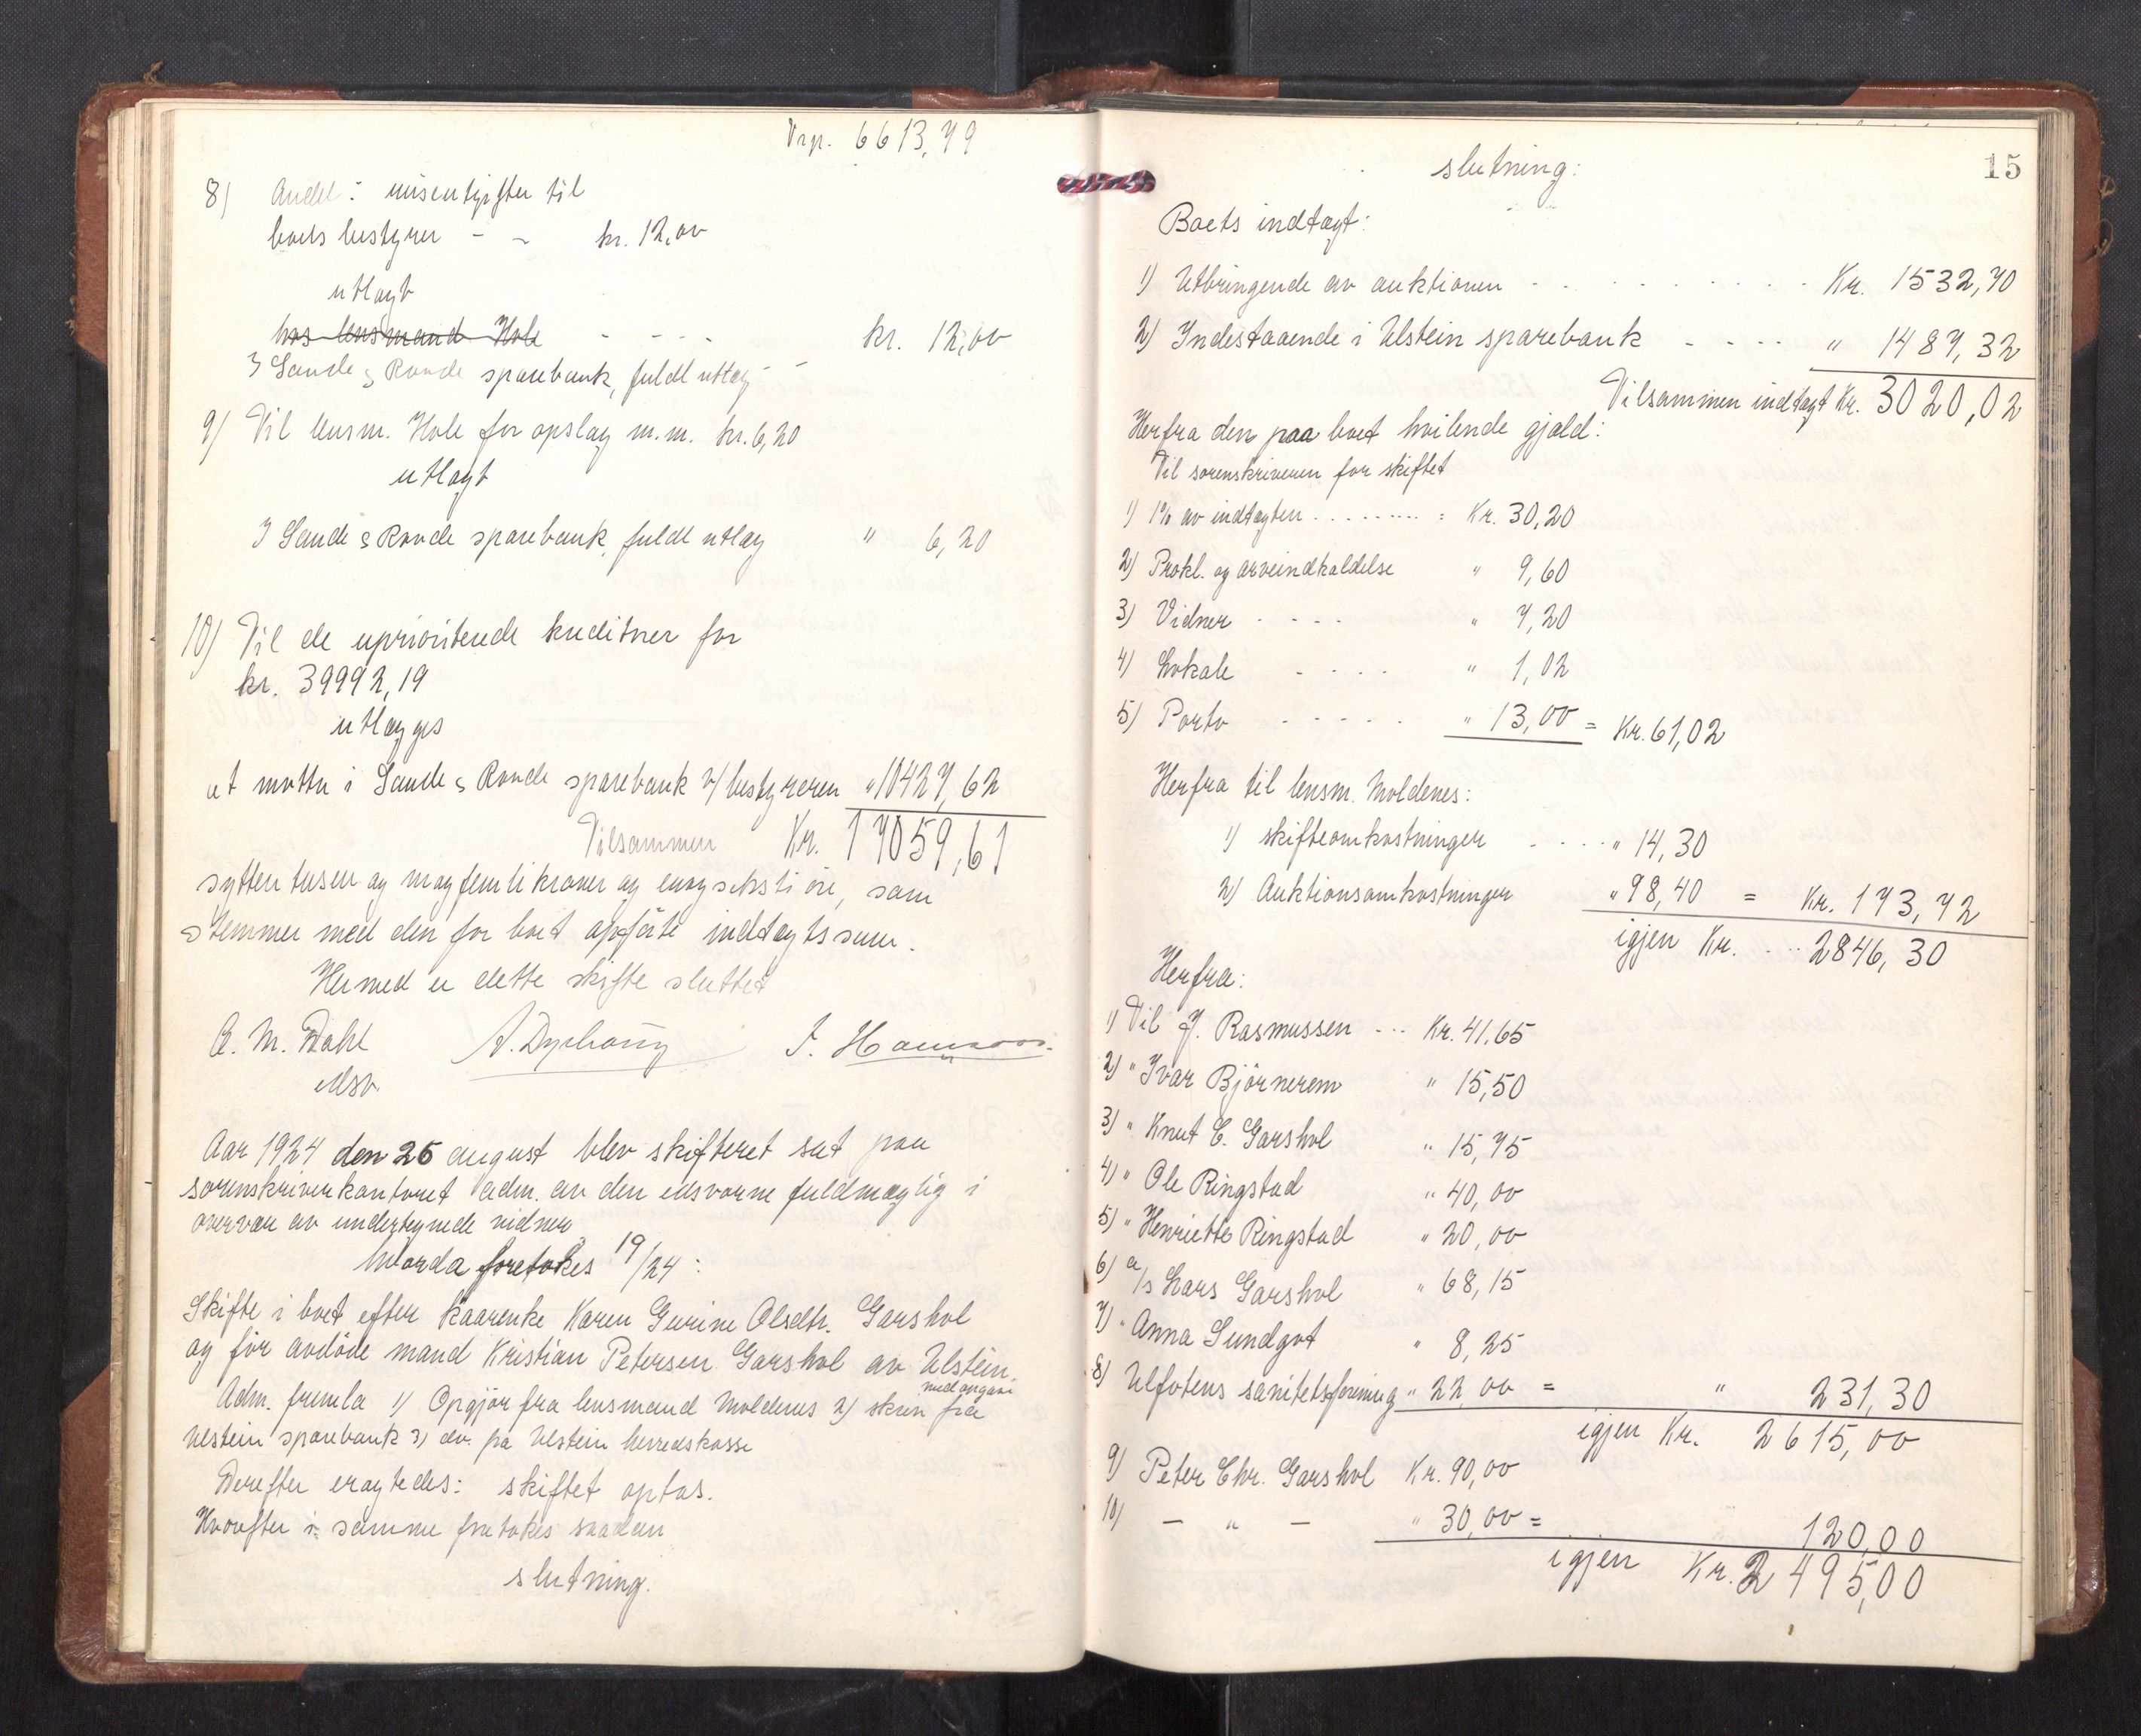 Vrp. 6613,79
8) Andel: misentgifter til
boets bestyrer - - kr. 12,00
utlagt
hos lensmand Hole - - - - kr. 12,00
I Sande & Rovde sparebank, fuldt utlæg - -
9) Til lensm. Hole for opslag m.m. kr. 6,20
utlagt
I Sande & Rovde sparebank, fuldt utlæg " 6,20
10) Til de uprioriterede kreditorer for
kr. 39992,19
utlægges
at motta i Sande & Rovde sparebank v/ bestyreren " 10427,62
Tilsammen Kr. 17059,61
sytten tusen og niogfemti kroner og enogseksti øre, som
stemmer med den for boet opførte indtægtssum.
Hermed er dette skifte sluttet
C. M. Dahl
edsv.
Aar 1924 den 26 august blev skifteret sat paa
sorenskriverkontoret adm. av den edsvorne fuldmægtig i
overvær av undertegnede vidner
Hvorda foretokes 19/24:
Skifte i boet efter kaarenke Karen Gurine Olsdtr. Garshol
og før avdöde mand Kristian Petersen Garshol av Ulstein.
Adm. fremla 1) Opgjör fra lensmand Moldenes 2) skriv fra
Ulstein sparebank 3) do. fra Ulstein herredskasse
Derefter eragtedes: skiftet optas.
Hvorefter i samme foretokes saadan
slutning.
15
slutning:
Boets indtægt:
1) Utbringende av auktionen - - - - - Kr. 1532,70
2) Indestaaende i Ulstein sparebank - - - - " 1487,32
Tilsammen indtægt Kr. 3020,02
Herfra den paa boet hvilende gjæld:
Til sorenskriveren for skiftet
1) 1% av indtægten . . . . . . : Kr. 30,20
2) Prokl. og arveindkaldelse " 9,60
3) Vidner - - - - " 7,20
4) Lokale - - - - " 1,02
5) Porto - - - - - " 13,00 = Kr. 61,02
Herfra til lensm. Moldenes:
1) skifteomkostninger - - - - " 14,30
2) Auktionsomkostninger " 98,40 = Kr. 173,72
igjen Kr. - - - 2846,30
Herfra:
1) Til J. Rasmussen - - - Kr. 41,65
2) " Ivar Björnerem " 15,50
3) " Knut C. Garshol " 15,75
4) " Ole Ringstad " 40,00
5) " Henriette Ringstad " 20,00
6) a/s Lars Garshol " 68,15
7) " Anna Sundgot " 8,25
8) Ulfotens sanitetsforening " 22,00 = " 231,30
igjen Kr. 2615,00
9) Peter Chr. Garshol Kr. 90,00
10) - " - " 30,00 = 120,00
igjen Kr. 2495,00